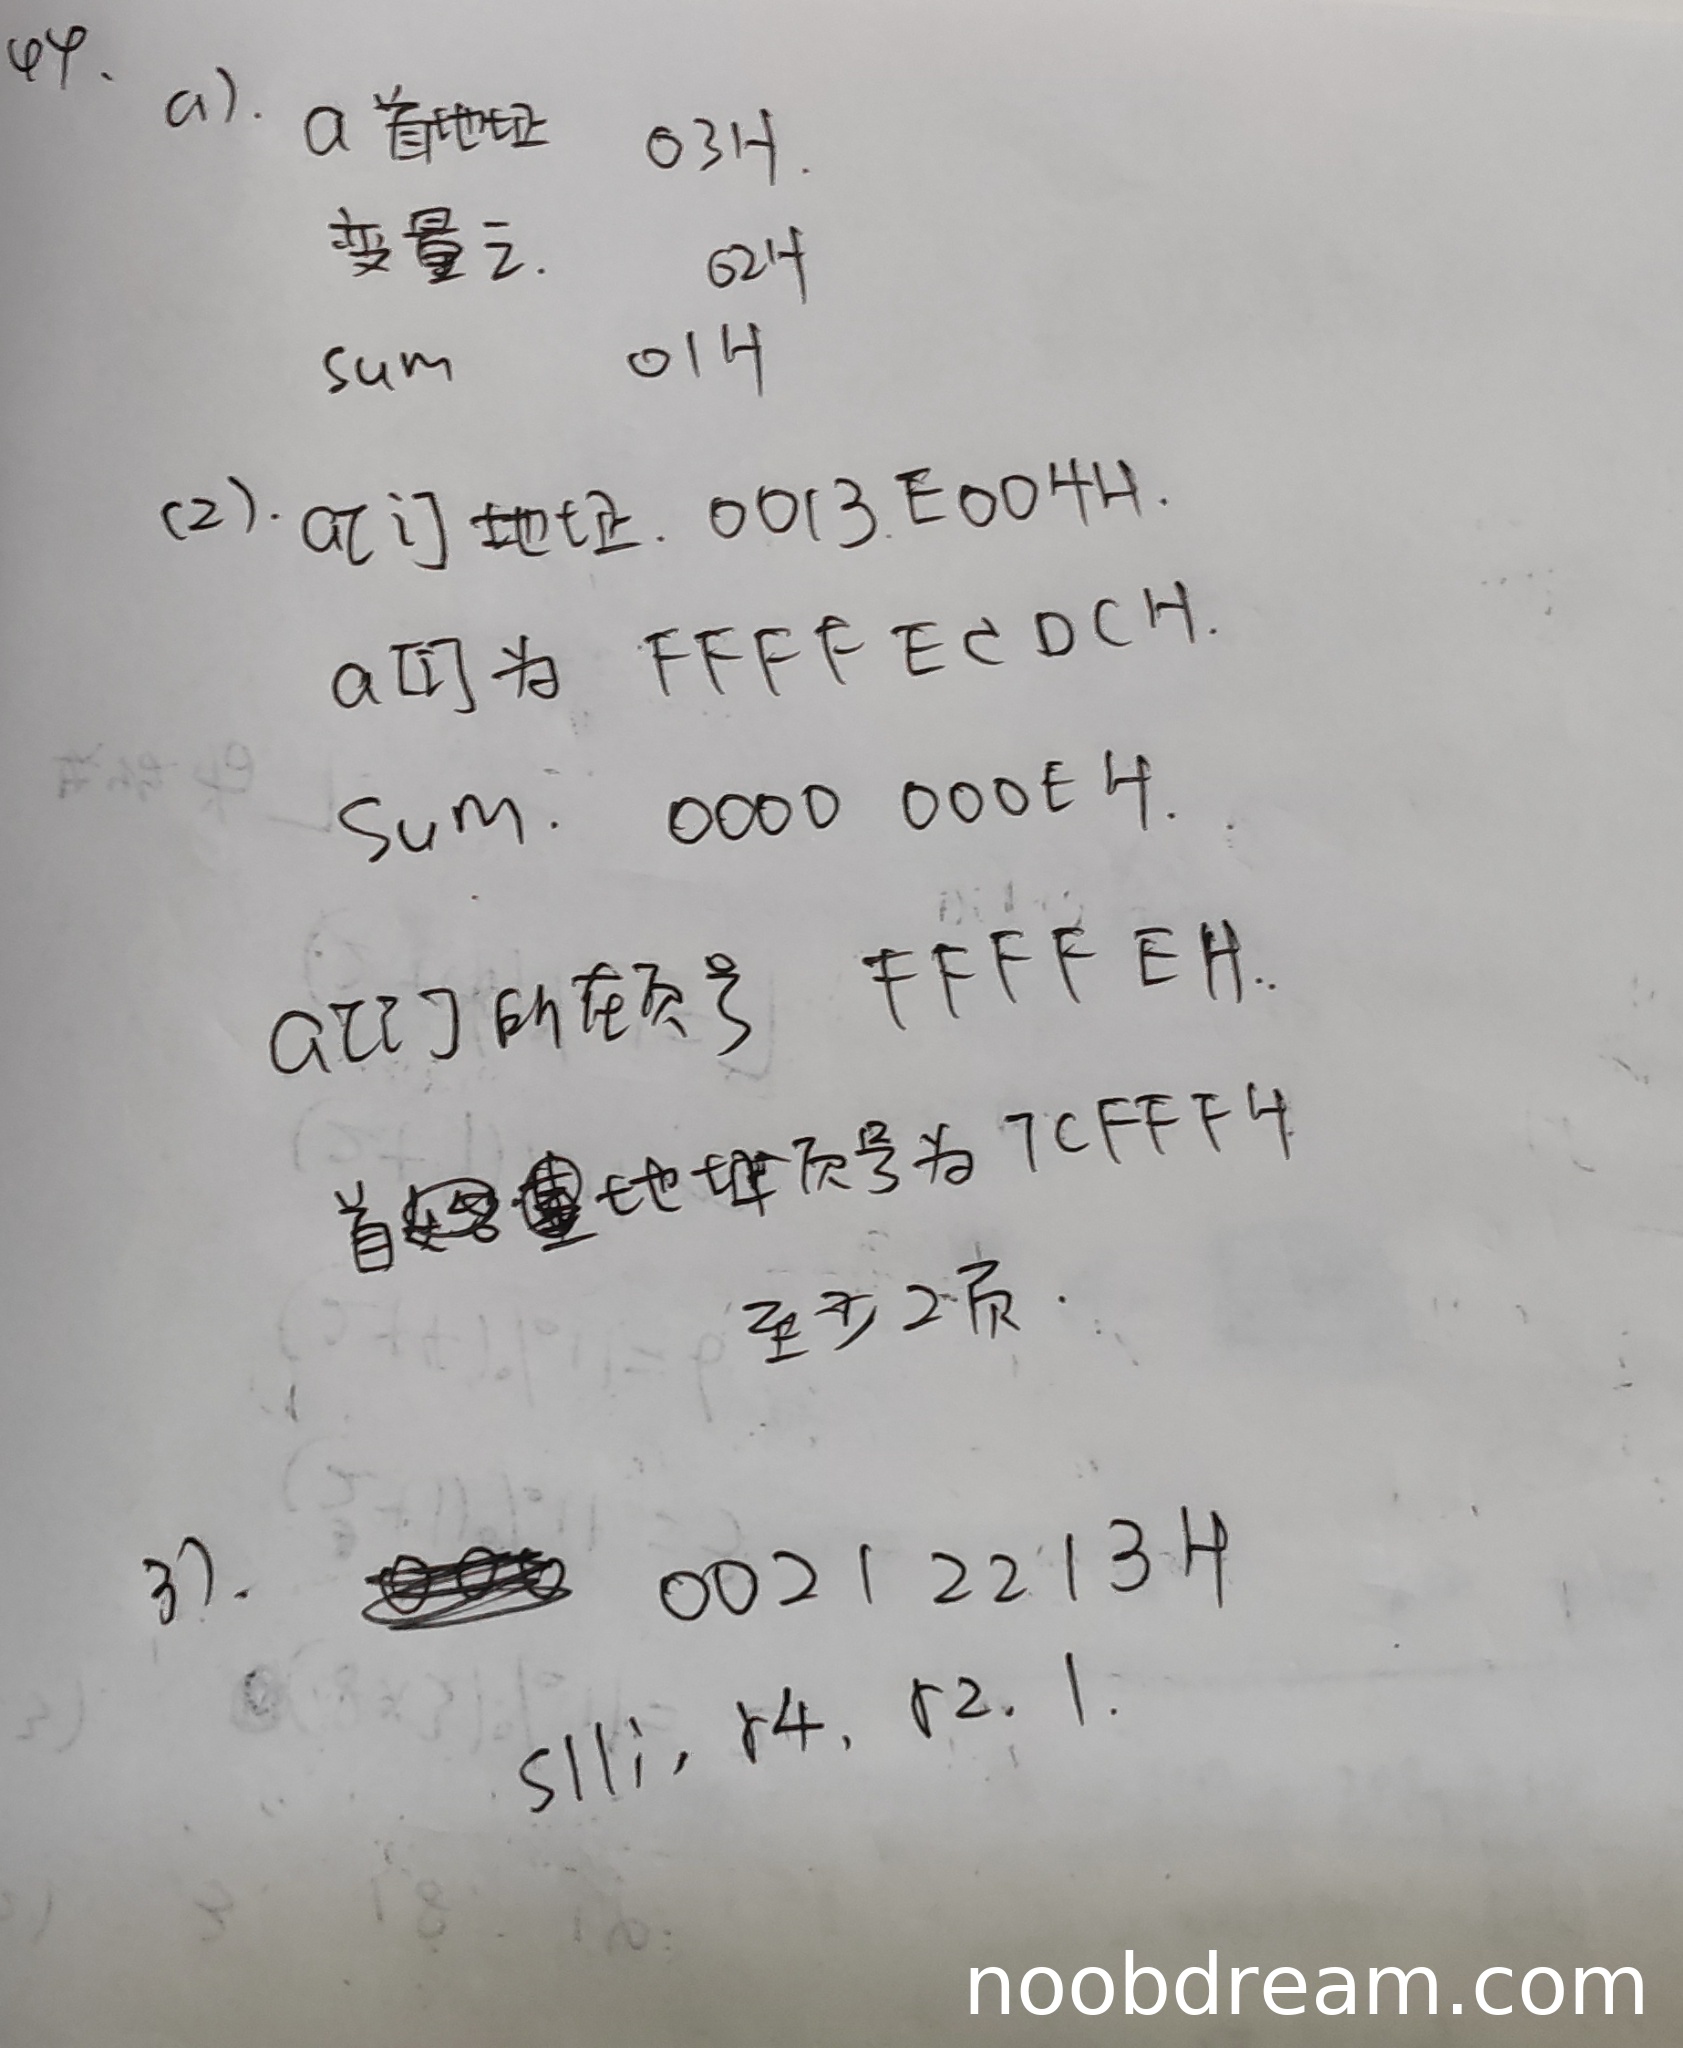 44.
a). a首地址 03H.
变量i. 02H
sum 01H
(2). a[i]地址. 0013 E004H.
a[i]为 FFFF ECDCH.
sum. 0000 000E H.
a[i]所在页号 FFFF EH.
首地址页号为7CFFFH
至少2页.
3). 0021 2213H
slli, r4, r2. 1.
noobdream.com